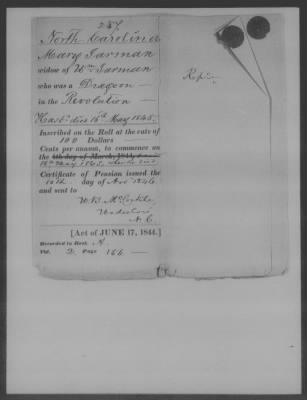 257
North Carolina
Mary Jarman
widow of Wm Jarman
who was a Dragoon
in the Revolution
Husbd died 16th May 1845.
Inscribed on the Roll at the rate of
100 Dollars
Cents per annum, to commence on
the 4th day of March, 1844,
16th May 1845,
Certificate of Pension issued the
10th day of Nov 1846
and sent to
W. B.
N. C.
[Act of JUNE 17, 1844.]
Recorded in Book A.
Vol. 2. Page 166